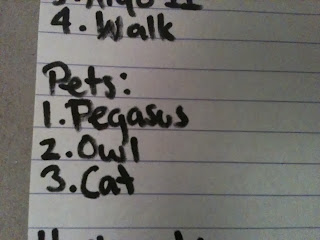 4. Walk
Pets:
1. Pegasus
2. Owl
3. Cat